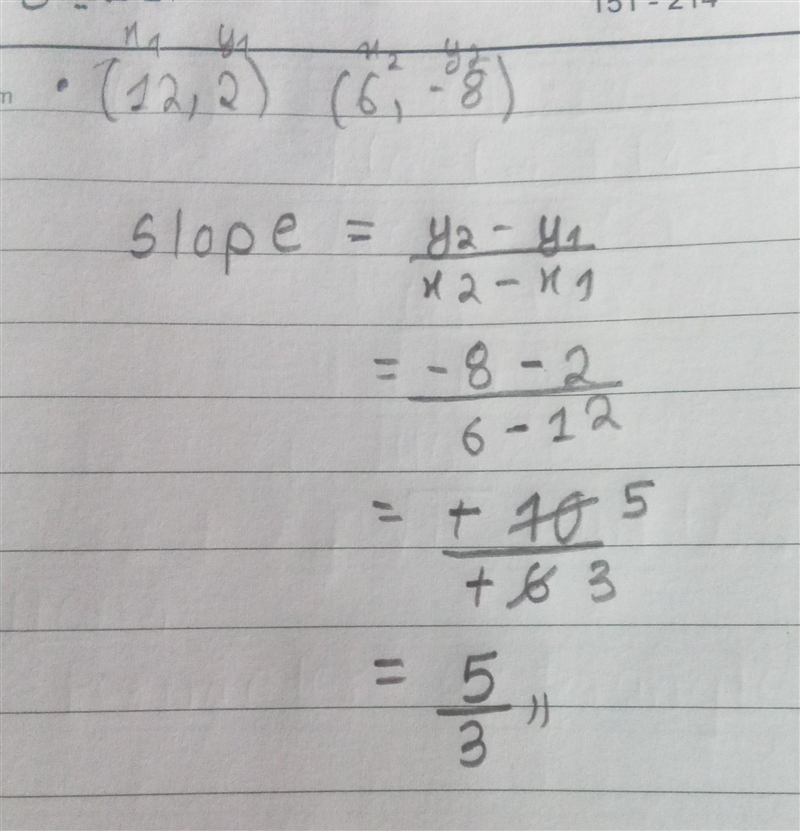 151 - 214
x1 y1 x2 y2
m • (12, 2) (6, -8)
slope = y2 - y1
x2 - x1
= -8 - 2
6 - 12
= + 10 5
+ 6 3
= 5
3 //